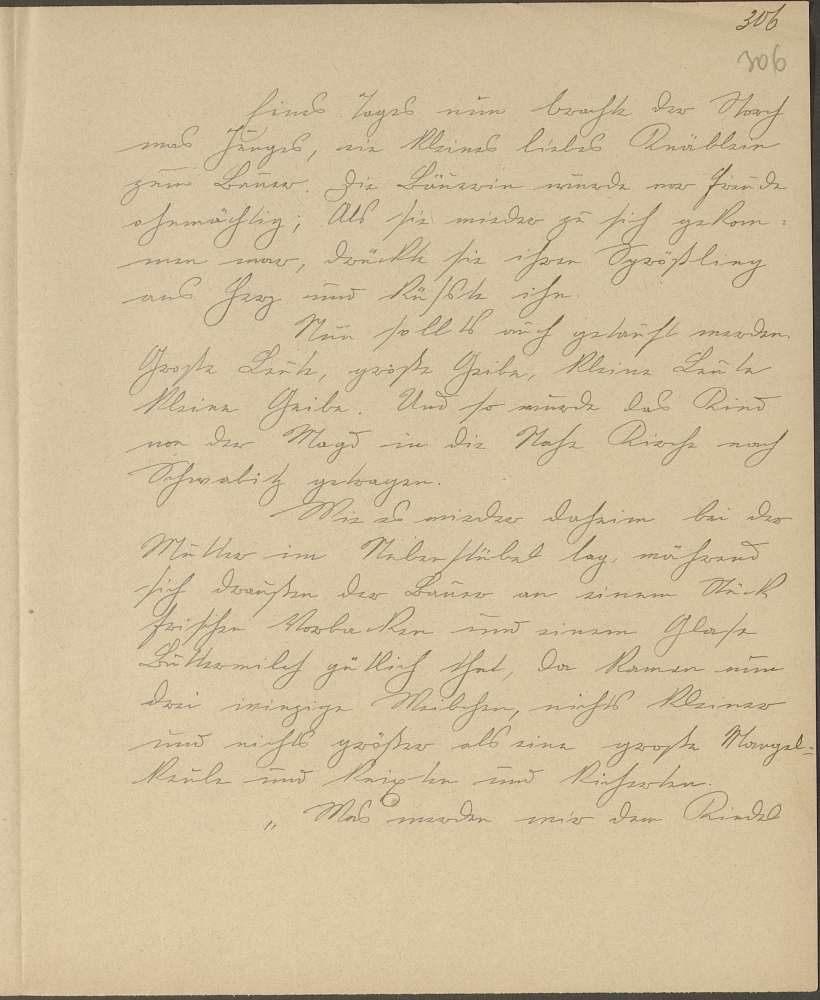 306
306
Eines Tages nun brachte der Storch
was Junges, ein kleines liebes Knäblein
zum Bauer. Die Bäuerin wurde vor Freude
ohnmächtig; Als sie wieder zu sich gekom-
men war, drückte sie ihren Sprößling
ans Herz und küßte ihn.
Nun sollts auch getauft werden.
Große Leute, große Geibe, kleine Leute
kleine Geibe. Und so wurde das Kind
von der Magd in die Nahe Kirche nach
Schwabitz getragen.
Wie es wieder daheim bei der
Mutter im Nebenstübel lag, während
sich draußen der Bauer an einem Stück
frischen Vorbacken und einem Glase
Buttermilch gütlich that, da kamen nun
drei winzige Weibchen, nichts kleiner
und nichts größer als eine große Mangel-
keule und und kicherten.
„Was werden wir dem Kindel